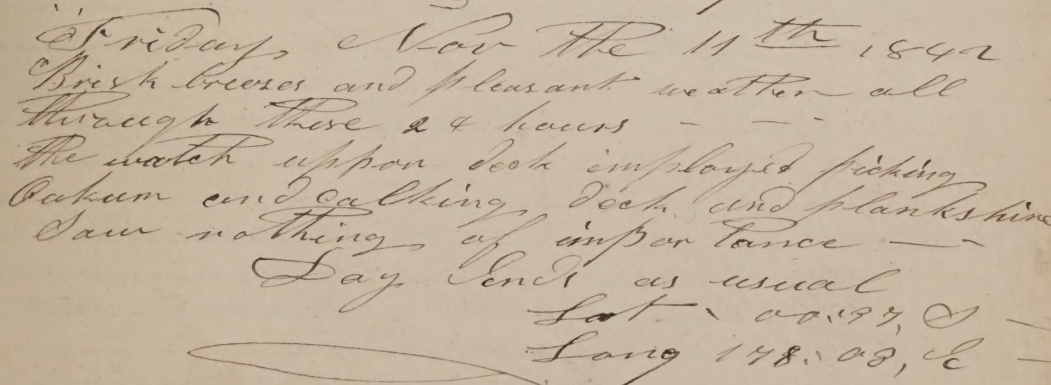 Friday Nov the 11th 1842
Brisk breezes and pleasant weather all
through these 24 hours - - -
the watch uppon deck imployed picking
Oakum and calking deck and plankshire
Saw nothing of importance — -
Day Ends as usual
Lat. 00:37, S -
Long 178:03, E -